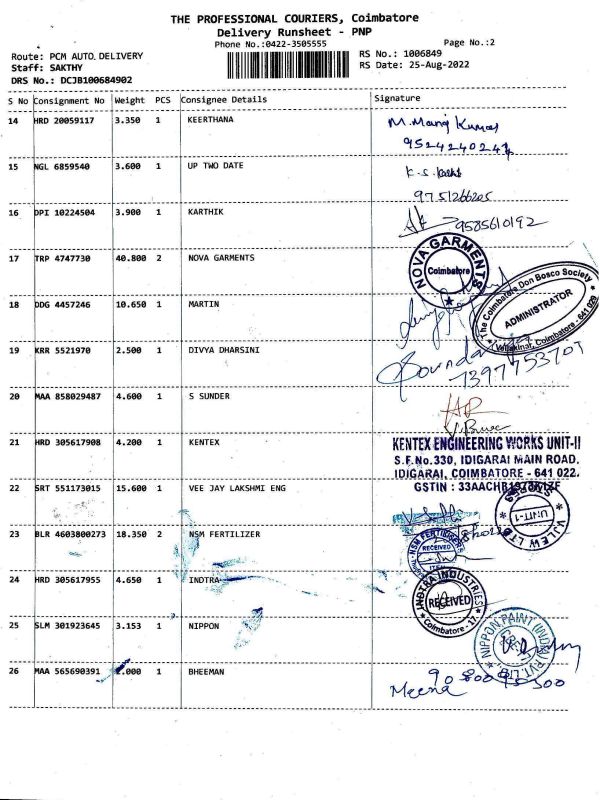 THE PROFESSIONAL COURIERS, Coimbatore
Delivery Runsheet - PNP
Phone No.:0422-3505555
Page No.:2
Route: PCM AUTO DELIVERY
RS No.: 1006849
Staff: SAKTHY
RS Date: 25-Aug-2022
DRS No.: DCJB100684902
S No Consignment No Weight PCS Consignee Details Signature
14 HRD 20059117 3.350 1 KEERTHANA M. Manoj Kumar
9524240247
15 NGL 6859540 3.600 1 UP TWO DATE
9751266205
16 DPI 10224504 3.900 1 KARTHIK 9585610192
17 TRP 4747730 40.800 2 NOVA GARMENTS
NOVA GARMENTS
Coimbatore
18 DDG 4457246 10.650 1 MARTIN
The Coimbatore Don Bosco Society
ADMINISTRATOR
Coimbatore - 641 029
19 KRR 5521970 2.500 1 DIVYA DHARSINI
7397753701
20 MAA 858029487 4.600 1 S SUNDER
21 HRD 305617908 4.200 1 KENTEX
KENTEX ENGINEERING WORKS UNIT-II
S.F.No.330, IDIGARAI MAIN ROAD.
IDIGARAI, COIMBATORE - 641 022.
GSTIN : 33AACHB
22 SRT 551173015 15.600 1 VEE JAY LAKSHMI ENG
STORES
UNIT-1
VJLEW LTD
23 BLR 4603800273 18.350 2 NSM FERTILIZER
NSM FERTILIZERS
RECEIVED
24 HRD 305617955 4.650 1 INDTRA
INDTRA INDUSTRIES
RECEIVED
Coimbatore - 17
25 SLM 301923645 3.153 1 NIPPON
NIPPON PAINT (INDIA) PVT. LTD
26 MAA 565690391 .000 1 BHEEMAN
Meena